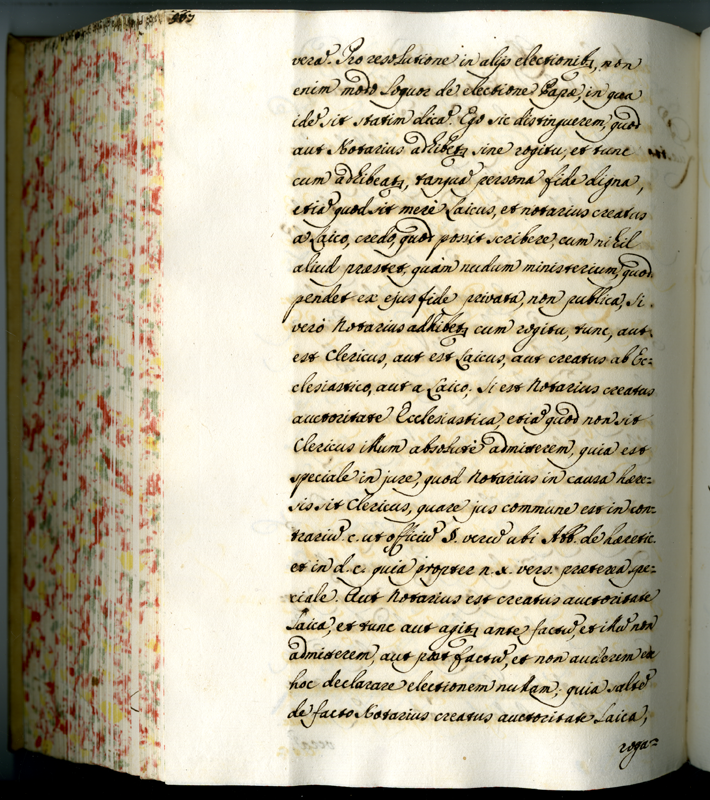 verâ. Pro resolutione in alijs electionibꝫ, non
enim modo loquor de electione Papæ, in qua
idẽ sit statim dicã. Ego sic distinguerem, quod
aut Notarius adhibetꝫ sine rogitu, et tunc
cum adhibeatꝫ, tanquã persona fide digna,
etiã quod sit merè Laicus, et notarius creatus
a Laico, credo, quod possit scribere, cum nihil
aliud præstet, quàm nudum ministerium, quod
pendet ex ejus fide privata, non publica, Si
verò Notarius adhibetꝫ cum rogitu, tunc, aut
est Clericus, aut est Laicus, aut creatus ab Ec=
clesiastico, aut a Laico, Si est Notarius creatus
auctoritate Ecclesiastica, etiã quod non sit
Clericus illum absolutè admitterem, quia est
speciale in jure, quod Notarius in causa hære=
sis sit Clericus, quare jus commune est in con=
trariũ c. ut officiũ §. verũ ubi Abb. de hæretic.
et in d. c. quia propter n. x. vers. præterea spe=
ciale. Aut Notarius est creatus auctoritate
Laica, et tunc aut agitꝫ ante factũ, et illũ non
admitterem, aut post factũ, et non auderem ex
hoc declarare electionem nullam, quia saltẽ
de facto Notarius creatus auctoritate Laica,
roga=